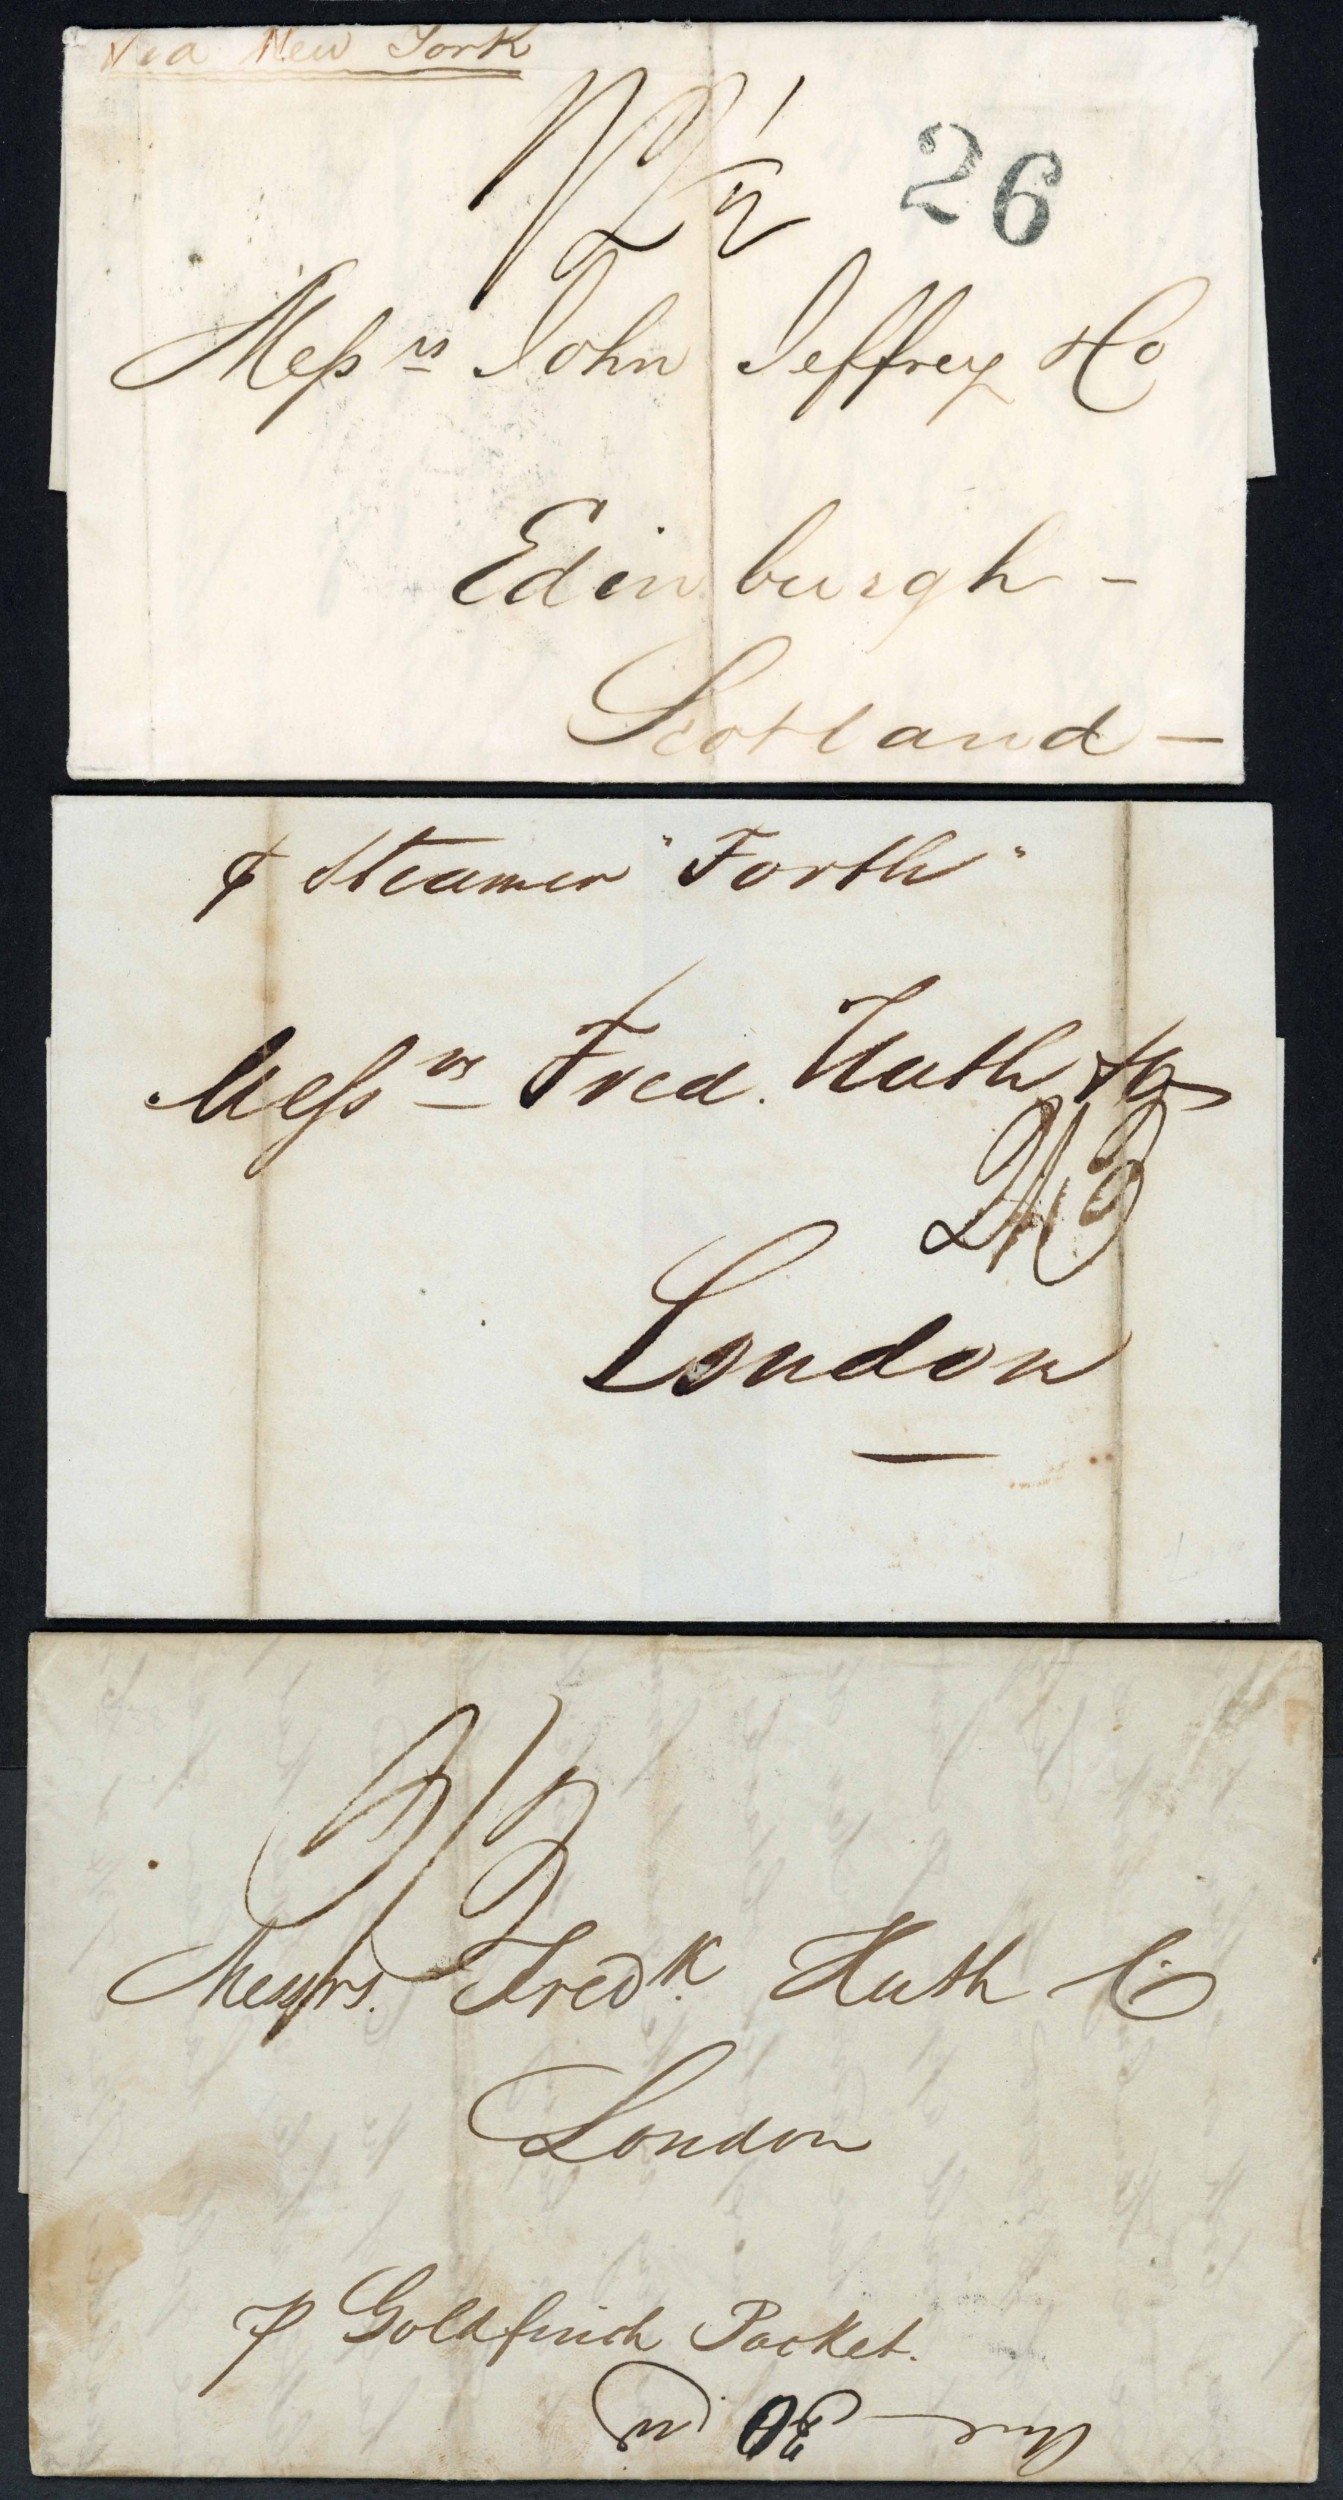 Via New York
1/2 1/2
26
Messrs John Jeffrey & Co
Edinburgh -
Scotland -
p Steamer "Forth"
Messrs Fred. Huth & Co
2/3
London
Messrs. Fredk. Huth & Co
London
p Goldfinch Packet.